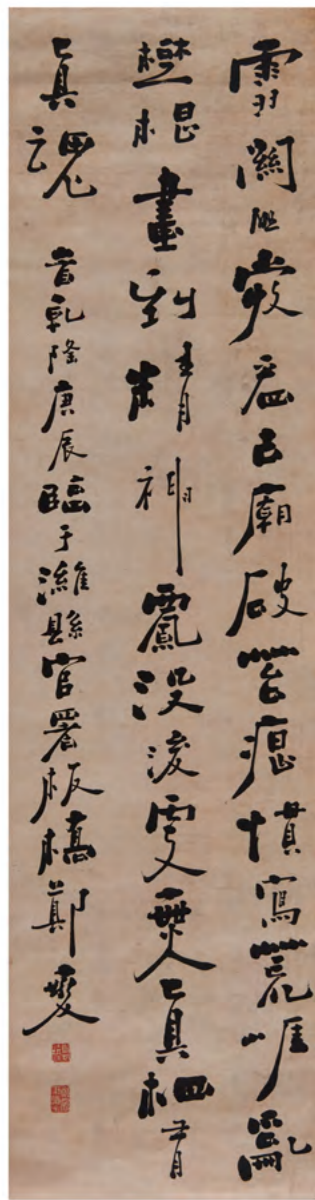 雪關愛看古廟破苔痕慣寫荒崖亂
樹根畫到精神飄沒處更無真相有
真魂 昔乾隆庚辰臨于濰縣官署板橋鄭燮